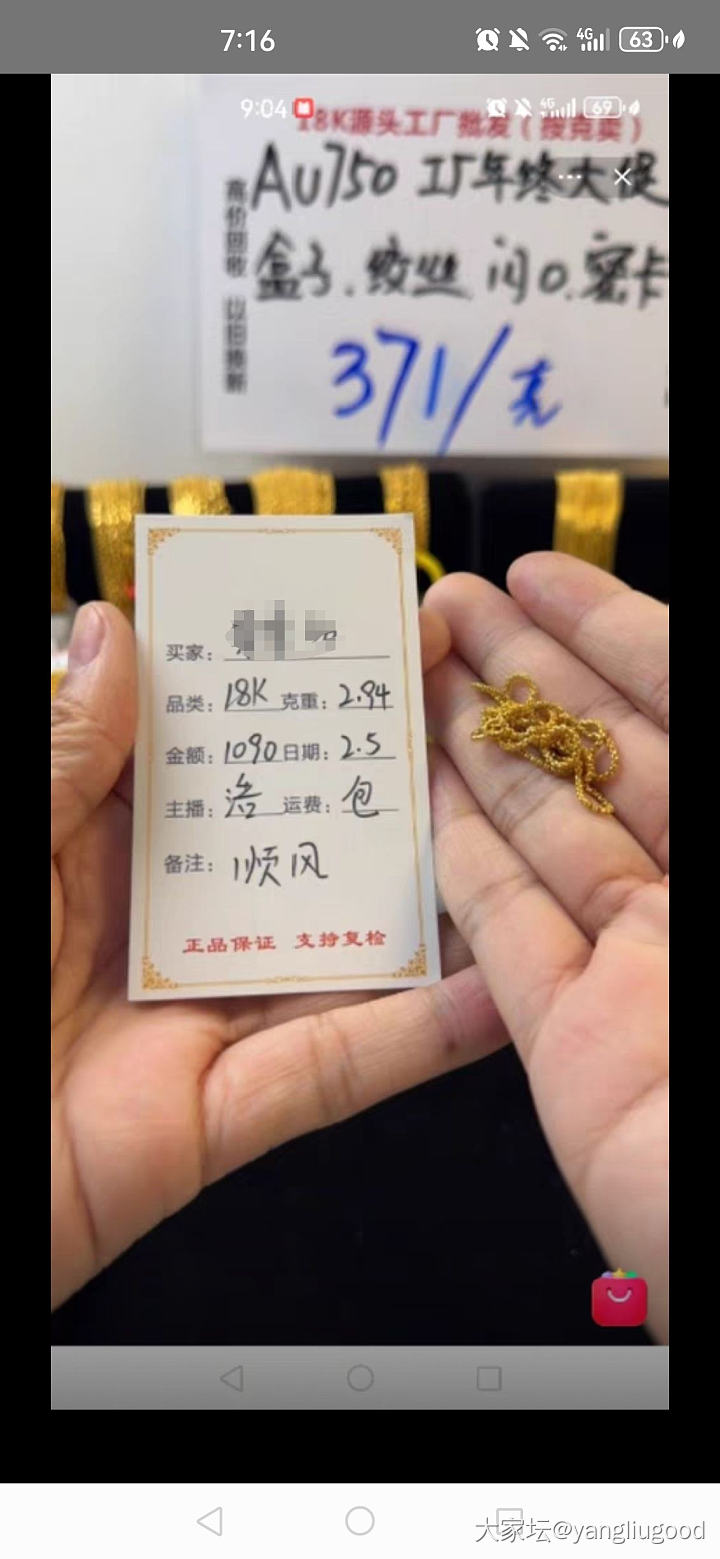 7:16
4G
63
9:04
4G
69
18K源头工厂批发（按克卖）
Au750 工厂年终大促
盒子.绞丝 闪O.密卡
371/克
高价回收 以旧换新
买家：
品类：18K 克重：2.94
金额：1090 日期：2.5
主播：洛 运费：包
备注：顺风
正品保证 支持复检
大家坛@yangliugood